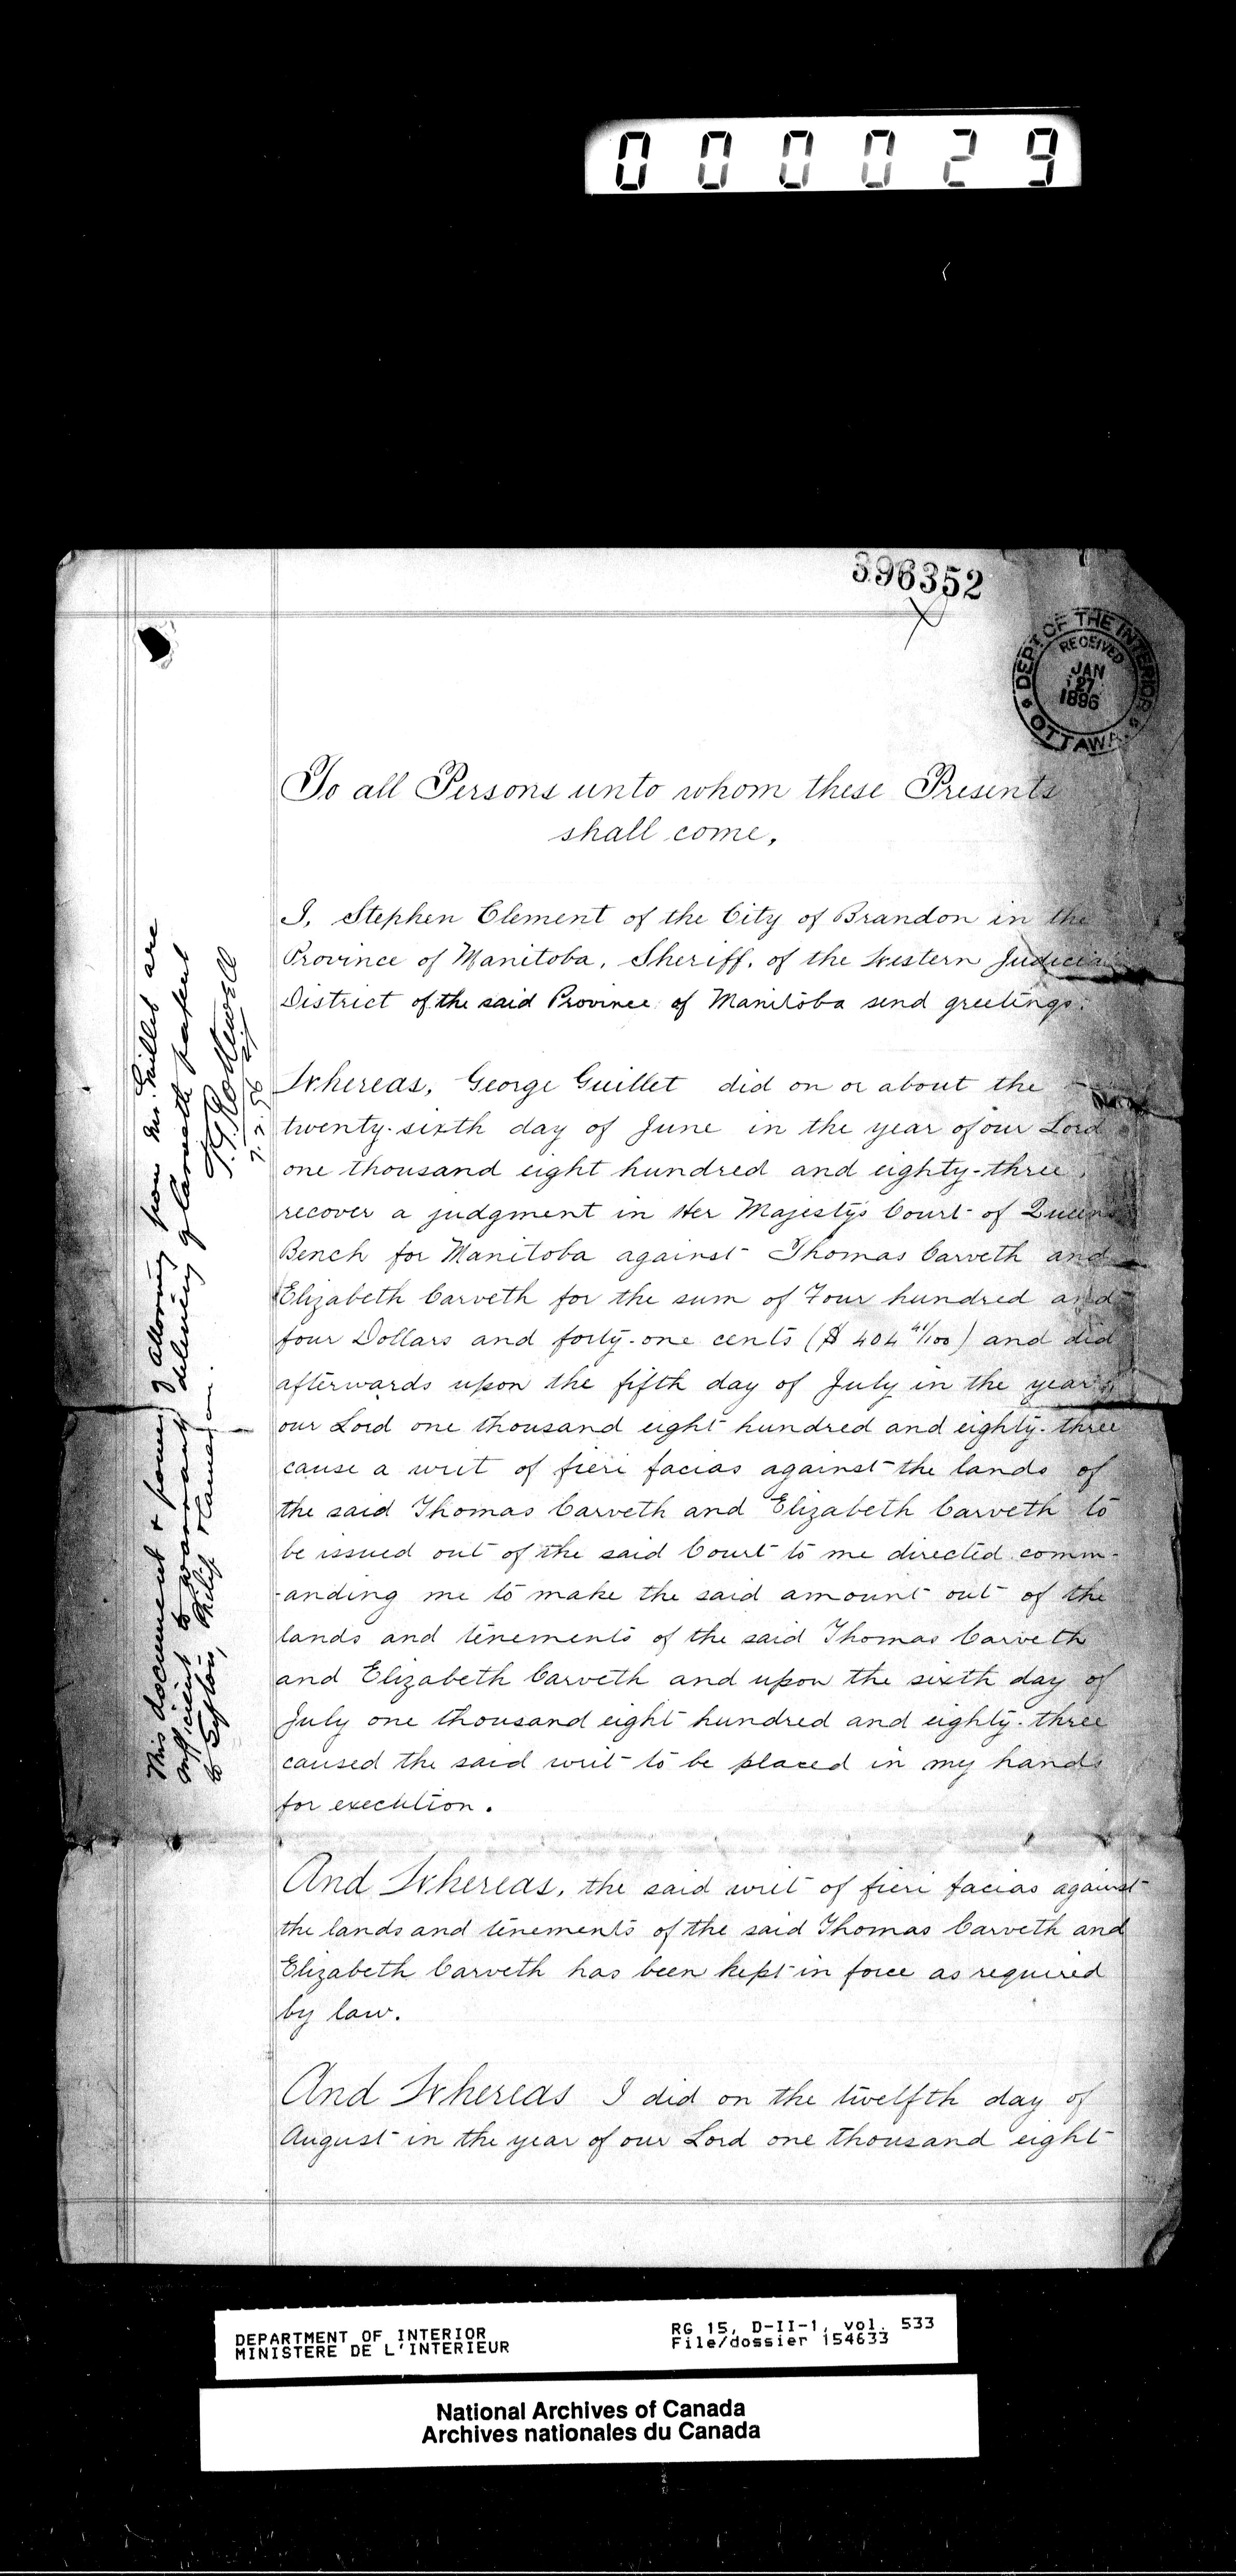 000029
396352
DEPT OF THE INTERIOR
RECEIVED
JAN
27
1896
OTTAWA.
To all Persons unto whom these Presents
shall come,
I, Stephen Clement of the City of Brandon in the
Province of Manitoba, Sheriff, of the Western Judicial
District of the said Province of Manitoba send greetings:
Whereas, George Guillet did on or about the
twenty-sixth day of June in the year of our Lord
one thousand eight hundred and eighty-three,
recover a judgment in Her Majesty's Court of Queens
Bench for Manitoba against Thomas Carveth and
Elizabeth Carveth for the sum of Four hundred and
four Dollars and forty-one cents ($404 41/100) and did
afterwards upon the fifth day of July in the year of
our Lord one thousand eight hundred and eighty-three
cause a writ of fieri facias against the lands of
the said Thomas Carveth and Elizabeth Carveth to
be issued out of the said Court to me directed comm-
-anding me to make the said amount out of the
lands and tenements of the said Thomas Carveth
and Elizabeth Carveth and upon the sixth day of
July one thousand eight hundred and eighty-three
caused the said writ to be placed in my hands
for execution.
And Whereas, the said writ of fieri facias against
the lands and tenements of the said Thomas Carveth and
Elizabeth Carveth has been kept in force as required
by law.
And Whereas I did on the twelfth day of
August in the year of our Lord one thousand eight
This document & power of attorney from Mr. Guillet are
sufficient to warrant delivery of Carveth patent
to Sifton, Philp &
7.2.96
DEPARTMENT OF INTERIOR
MINISTERE DE L'INTERIEUR
RG 15, D-II-1, vol. 533
File/dossier 154633
National Archives of Canada
Archives nationales du Canada